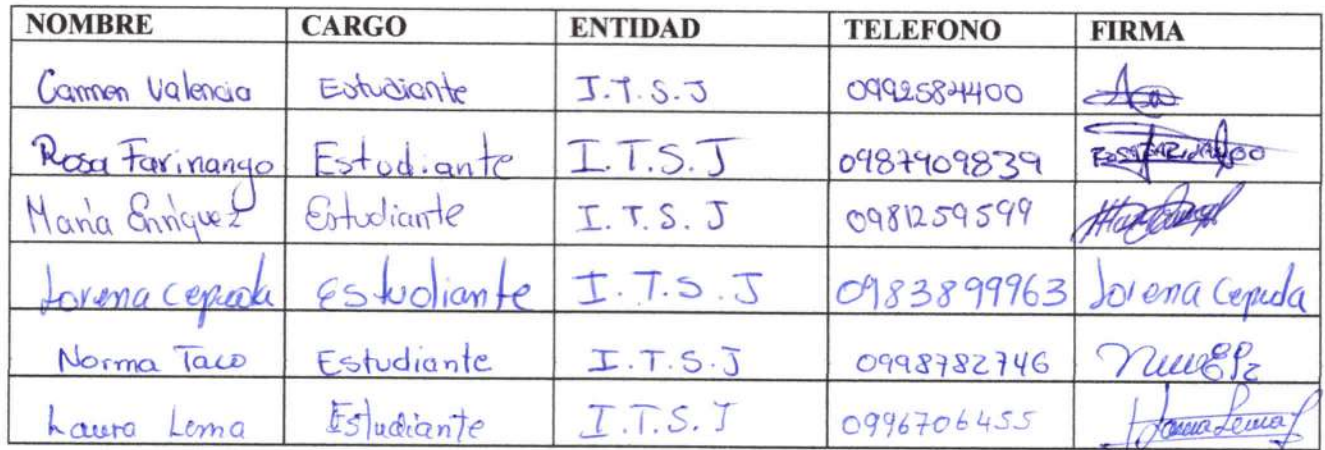 NOMBRE CARGO ENTIDAD TELEFONO FIRMA
Carmen Valencia Estudiante I.T.S.J 0992584400
Rosa Farinango Estudiante I.T.S.J 0987909839
María Enríquez Estudiante I.T.S.J 0981259599
Lorena Cepeda Estudiante I.T.S.J 0983899963 Lorena Cepeda
Norma Taco Estudiante I.T.S.J 0998782746
Laura Lema Estudiante I.T.S.J 0996706455 Laura Lema